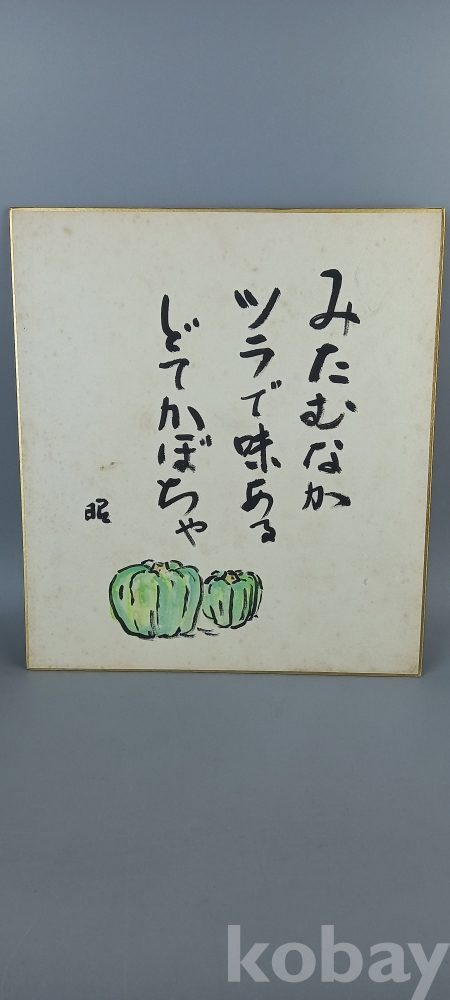 みたむなか
ツラで味ある
どてかぼちゃ
kobay